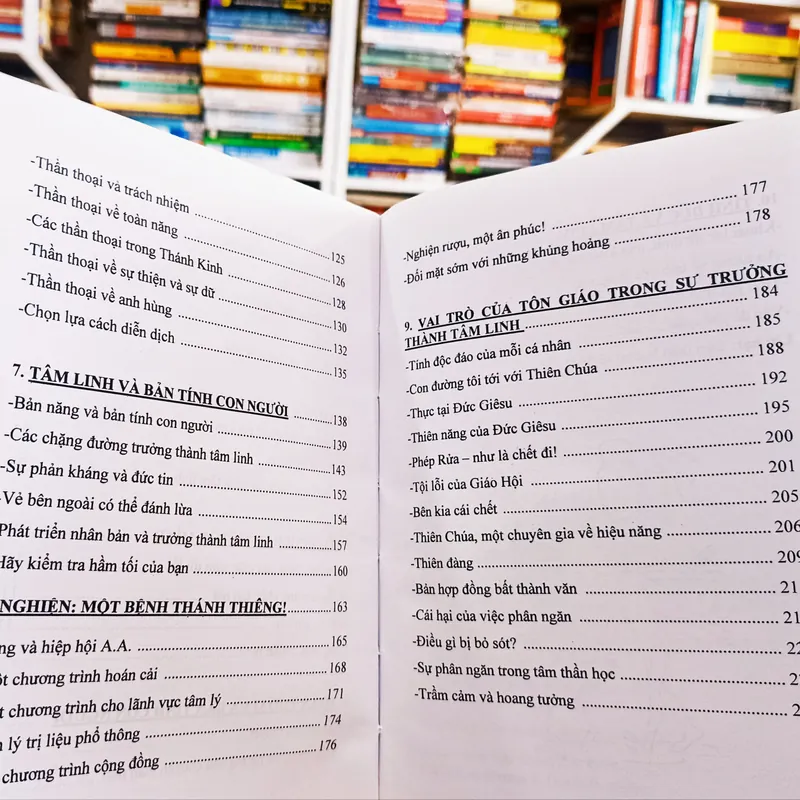 -Thần thoại và trách nhiệm ........ 125
-Thần thoại về toàn năng ........ 126
-Các thần thoại trong Thánh Kinh ........ 128
-Thần thoại về sự thiện và sự dữ ........ 130
-Thần thoại về anh hùng ........ 132
-Chọn lựa cách diễn dịch ........ 135
7. TÂM LINH VÀ BẢN TÍNH CON NGƯỜI ........ 138
-Bản năng và bản tính con người ........ 139
-Các chặng đường trưởng thành tâm linh ........ 143
-Sự phản kháng và đức tin ........ 152
-Vẻ bên ngoài có thể đánh lừa ........ 154
Phát triển nhân bản và trưởng thành tâm linh ........ 157
Hãy kiểm tra hầm tối của bạn ........ 160
NGHIỆN: MỘT BỆNH THÁNH THIÊNG! ........ 163
và hiệp hội A.A. ........ 165
chương trình hoán cải ........ 168
chương trình cho lãnh vực tâm lý ........ 171
lý trị liệu phổ thông ........ 174
chương trình cộng đồng ........ 176
-Nghiện rượu, một ân phúc! ........ 177
-Đối mặt sớm với những khủng hoảng ........ 178
9. VAI TRÒ CỦA TÔN GIÁO TRONG SƯ TRƯỞNG
THÀNH TÂM LINH ........ 184
-Tính độc đáo của mỗi cá nhân ........ 185
-Con đường tôi tới với Thiên Chúa ........ 188
-Thực tại Đức Giêsu ........ 192
-Thiên năng của Đức Giêsu ........ 195
-Phép Rửa – như là chết đi! ........ 200
-Tội lỗi của Giáo Hội ........ 201
-Bên kia cái chết ........ 205
-Thiên Chúa, một chuyên gia về hiệu năng ........ 206
-Thiên đàng ........ 209
-Bản hợp đồng bất thành văn ........ 21
-Cái hại của việc phân ngăn ........ 21
-Điều gì bị bỏ sót? ........ 22
-Sự phân ngăn trong tâm thần học ........ 2
-Trầm cảm và hoang tưởng ........ 2